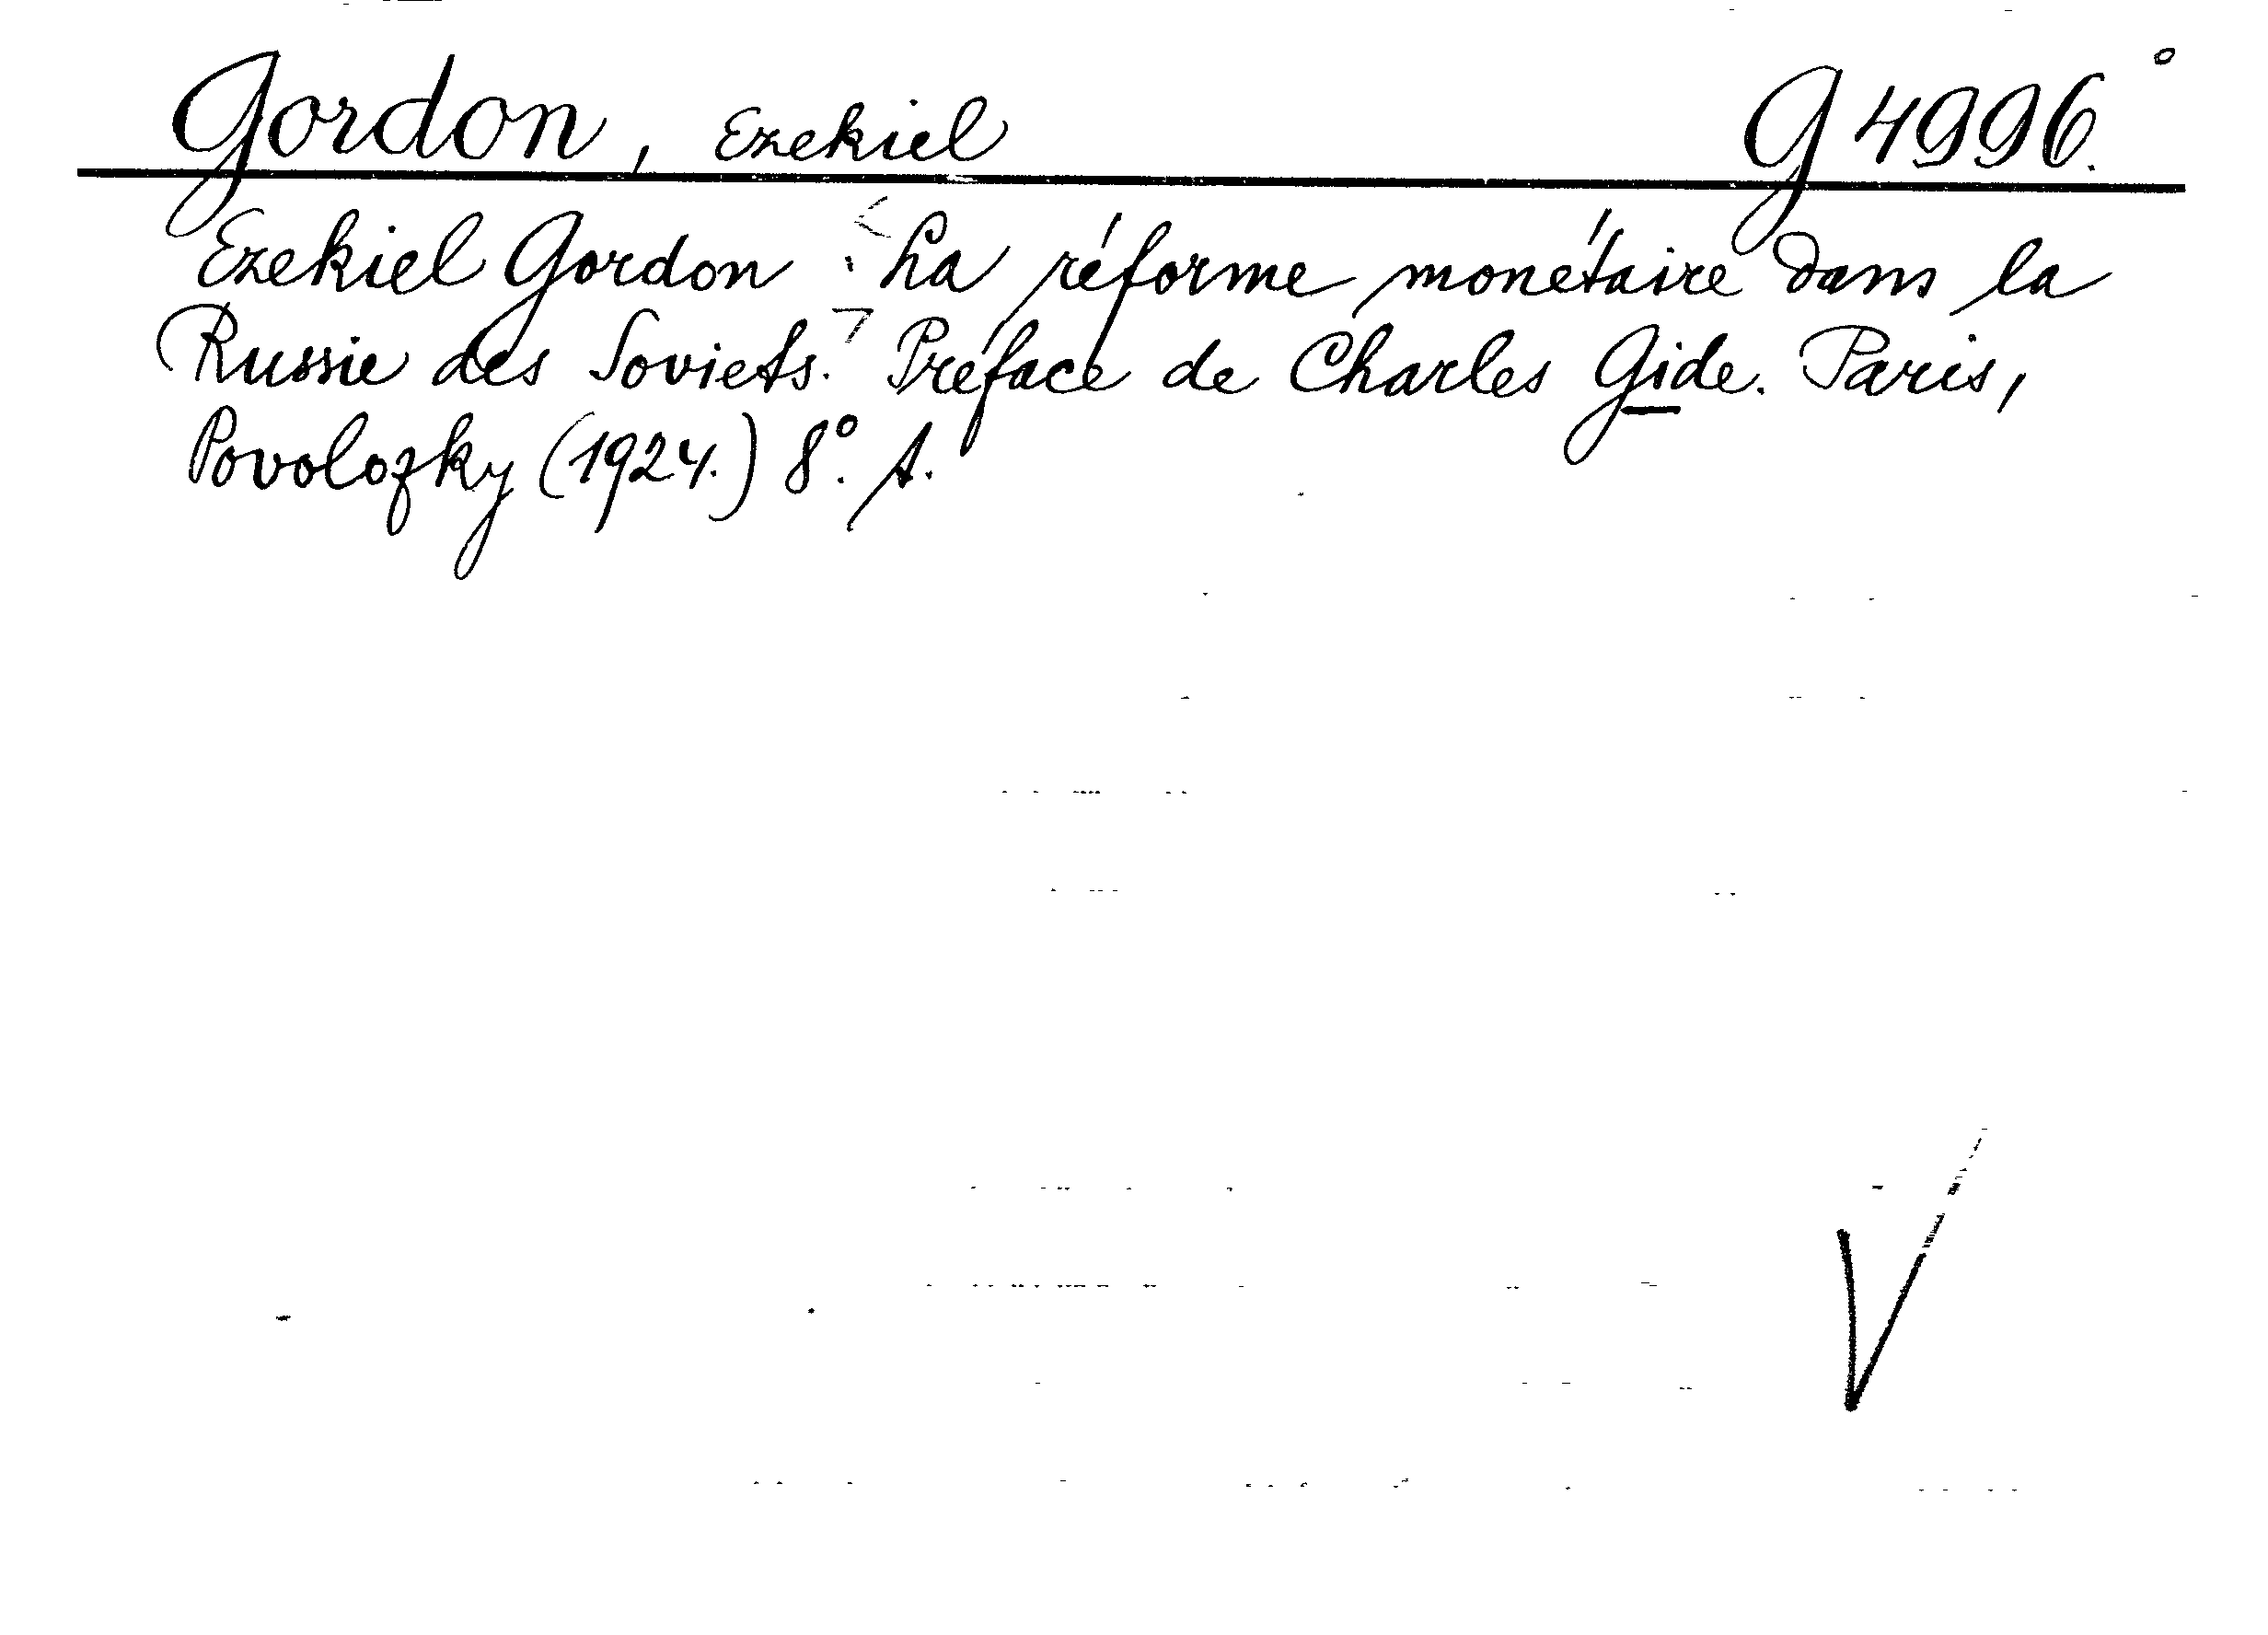 Gordon, Ezekiel G 4996.°
Ezekiel Gordon : <La réforme monétaire dans la
Russie des Soviets.> Préface de Charles Gide. Paris,
Povolozky (1924.) 8°. A.